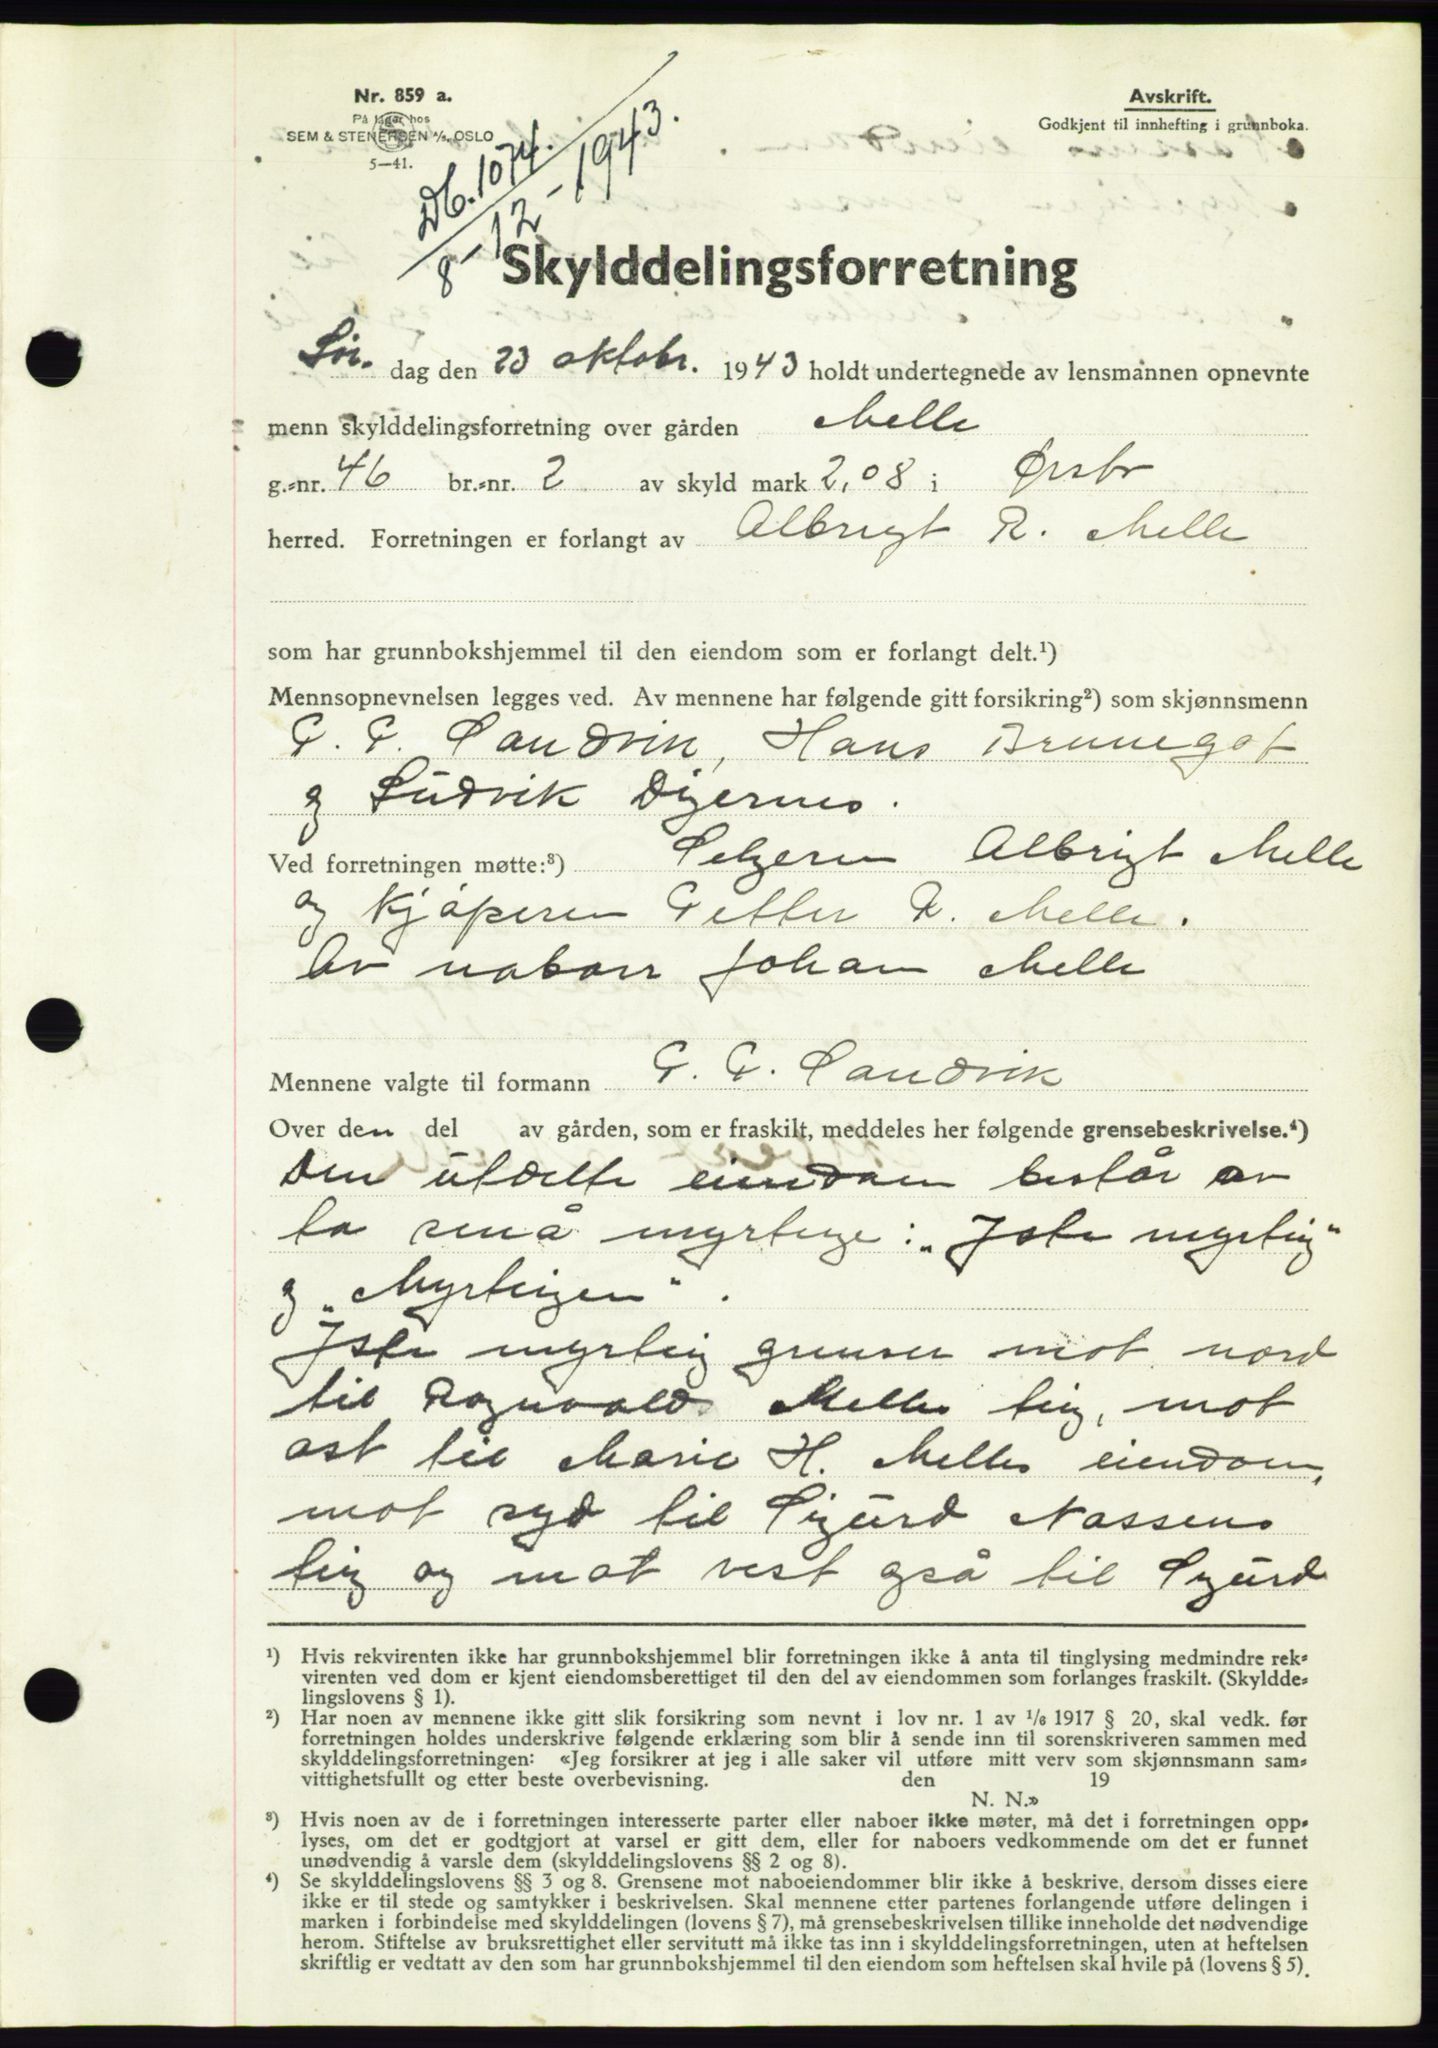 Nr. 859 a.
På lager hos
SEM & STENERSEN A/S, OSLO
5—41.
Avskrift.
Godkjent til innhefting i grunnboka.
Db. 1074.
8-12-1943.
Skylddelingsforretning
Lør. dag den 23 oktobr. 1943 holdt undertegnede av lensmannen opnevnte
menn skylddelingsforretning over gården Melle
g.=nr. 46 br.=nr. 2 av skyld mark 2,08 i Ørsta
herred. Forretningen er forlangt av Albrigt R. Melle
som har grunnbokshjemmel til den eiendom som er forlangt delt.¹)
Mennsopnevnelsen legges ved. Av mennene har følgende gitt forsikring²) som skjønnsmenn
P. P. Sandvik, Hans Brunegot
og Ludvik Digernes.
Ved forretningen møtte:³) Selgeren Albrigt Melle
og kjøperen Petter R. Melle.
Av naboar Johan Melle
Mennene valgte til formann P. P. Sandvik
Over den del av gården, som er fraskilt, meddeles her følgende grensebeskrivelse.⁴)
Den utdelte eiendom består av
to små myrteige: „Iste myrteig"
og „Myrteigen".
Iste myrteig grenser mot nord
til Ragnvald Melles teig, mot
ost til Marie H. Melles eiendom,
mot syd til Sigurd Nassens
teig og mot vest også til Sigurd
¹) Hvis rekvirenten ikke har grunnbokshjemmel blir forretningen ikke å anta til tinglysing medmindre rek=
virenten ved dom er kjent eiendomsberettiget til den del av eiendommen som forlanges fraskilt. (Skyldde=
lingslovens § 1).
²) Har noen av mennene ikke gitt slik forsikring som nevnt i lov nr. 1 av 1/6 1917 § 20, skal vedk. før
forretningen holdes underskrive følgende erklæring som blir å sende inn til sorenskriveren sammen med
skylddelingsforretningen: «Jeg forsikrer at jeg i alle saker vil utføre mitt verv som skjønnsmann sam=
vittighetsfullt og etter beste overbevisning. den 19
N. N.»
³) Hvis noen av de i forretningen interesserte parter eller naboer ikke møter, må det i forretningen opp=
lyses, om det er godtgjort at varsel er gitt dem, eller for naboers vedkommende om det er funnet
unødvendig å varsle dem (skylddelingslovens §§ 2 og 8).
⁴) Se skylddelingslovens §§ 3 og 8. Grensene mot naboeiendommer blir ikke å beskrive, dersom disses eiere
ikke er til stede og samtykker i beskrivelsen. Skal mennene etter partenes forlangende utføre delingen i
marken i forbindelse med skylddelingen (lovens § 7), må grensebeskrivelsen tillike inneholde det nødvendige
herom. Stiftelse av bruksrettighet eller servitutt må ikke tas inn i skylddelingsforretningen, uten at heftelsen
skriftlig er vedtatt av den som har grunnbokshjemmel til den eiendom som heftelsen skal hvile på (lovens § 5).